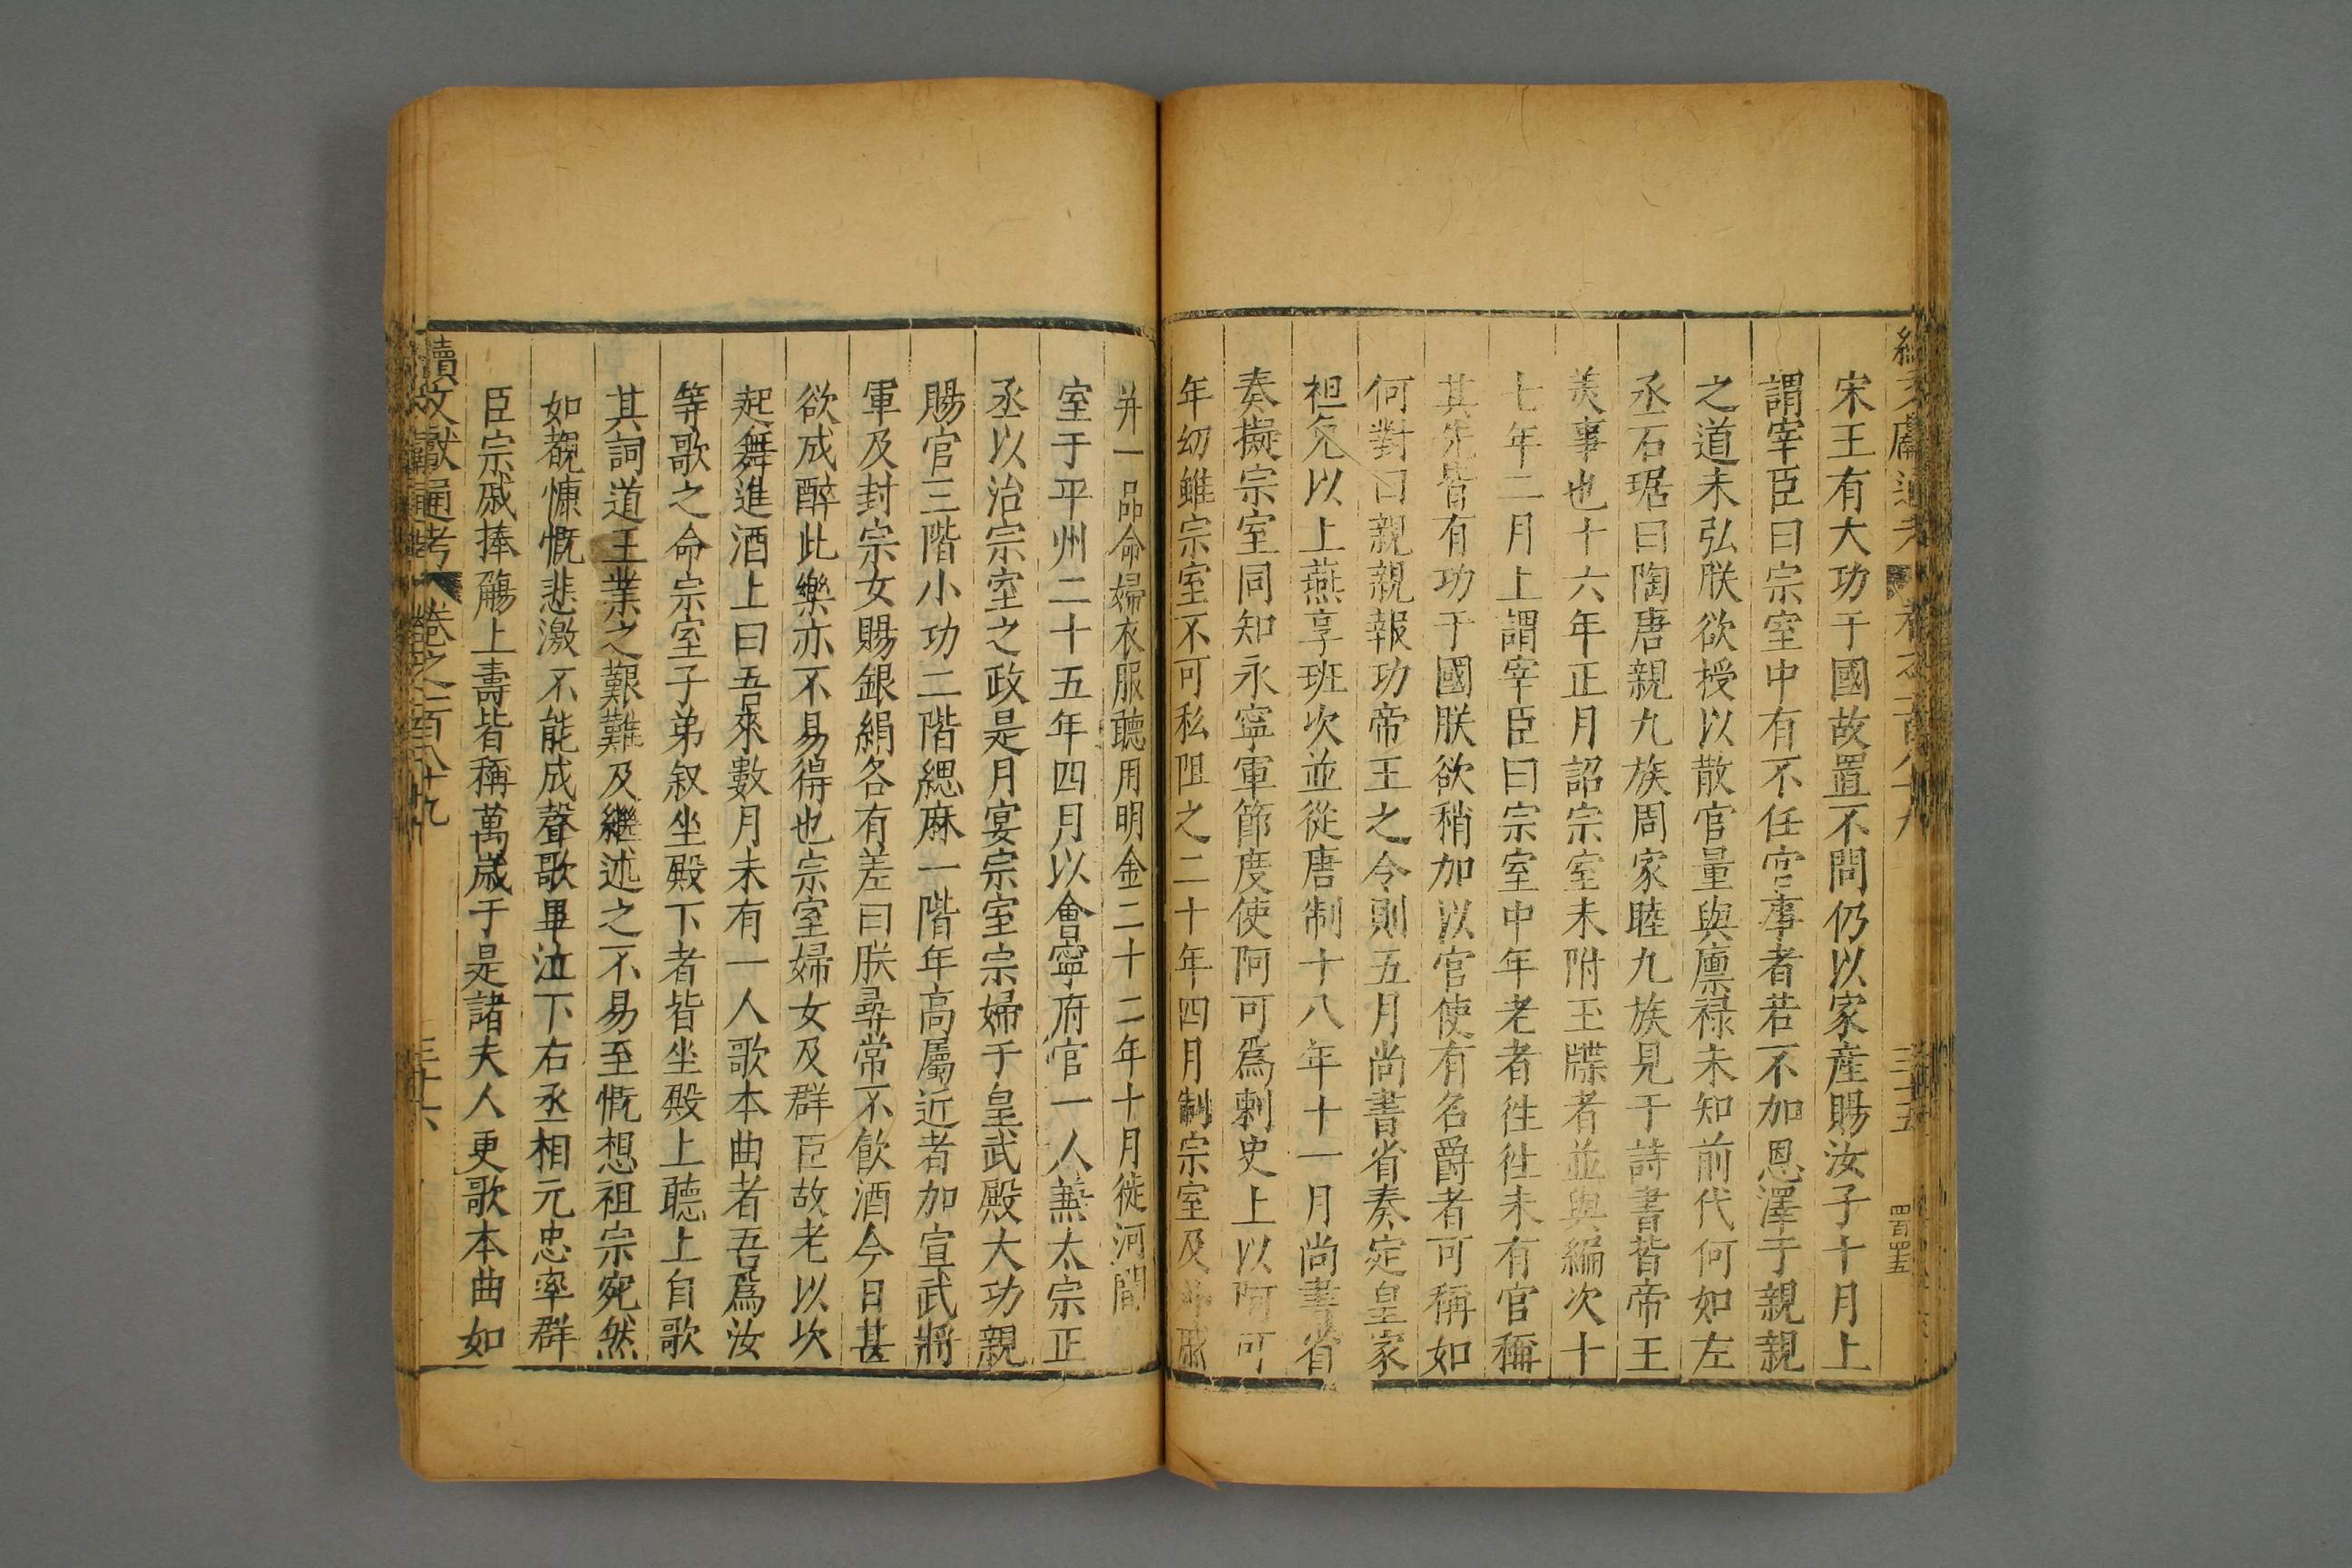 宋王有大功于國故置不問仍以家産賜汝子十月上
謂宰臣曰宗室中有不任官事者若不加恩澤于親親
之道未弘朕欲授以散官量與廪禄未知前代何如左
丞石琚曰陶唐親九族周家睦九族見于詩書皆帝王
美事也十六年正月詔宗室未附玉牒者並與編次十
七年二月上謂宰臣曰宗室中年老者往往未有官稱
其先皆有功于國朕欲稍加以官使有名爵者可稱如
何對曰親親報功帝王之令則五月尚書省奏定皇家
袒免以上燕享班次並從唐制十八年十一月尚書省
奏擬宗室同知永寧軍節度使阿可爲刺史上以阿可
年幼雖宗室不可私阻之二十年四月制宗室及外戚
并一品命婦衣服聽用明金二十二年十月徙河間
室于平州二十五年四月以會寧府官一人兼太宗正
丞以治宗室之政是月宴宗室宗婦于皇武殿大功親
賜官三階小功二階緦麻一階年高屬近者加宣武將
軍及封宗女賜銀絹各有差曰朕尋常不飲酒今日甚
欲成醉此樂亦不易得也宗室婦女及群臣故老以次
起舞進酒上曰吾來數月未有一人歌本曲者吾爲汝
等歌之命宗室子弟叙坐殿下者皆坐殿上聽上自歌
其詞道王業之艱難及繼述之不易至慨想祖宗宛然
如覩慷慨悲激不能成聲歌畢泣下右丞相元忠率群
臣宗戚捧觴上壽皆稱萬歲于是諸夫人更歌本曲如
續文獻通考 卷之一百八十九 三十六